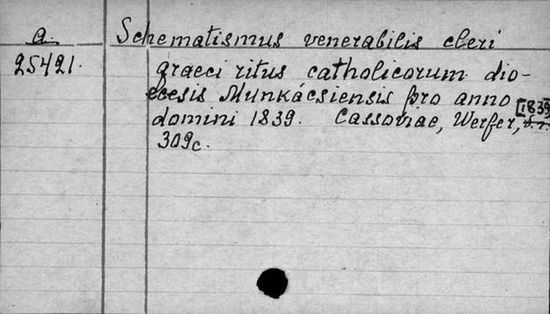 a.
25421.
Schematismus venerabilis cleri
graeci ritus catholicorum dio-
ecesis Munkácsiensis pro anno
domini 1839. Cassoviae, Werfer, [1839]
309c.